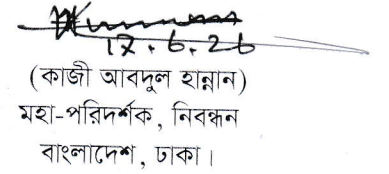 ১৭.৬.২৬
(কাজী আবদুল হান্নান)
মহা-পরিদর্শক, নিবন্ধন
বাংলাদেশ, ঢাকা।